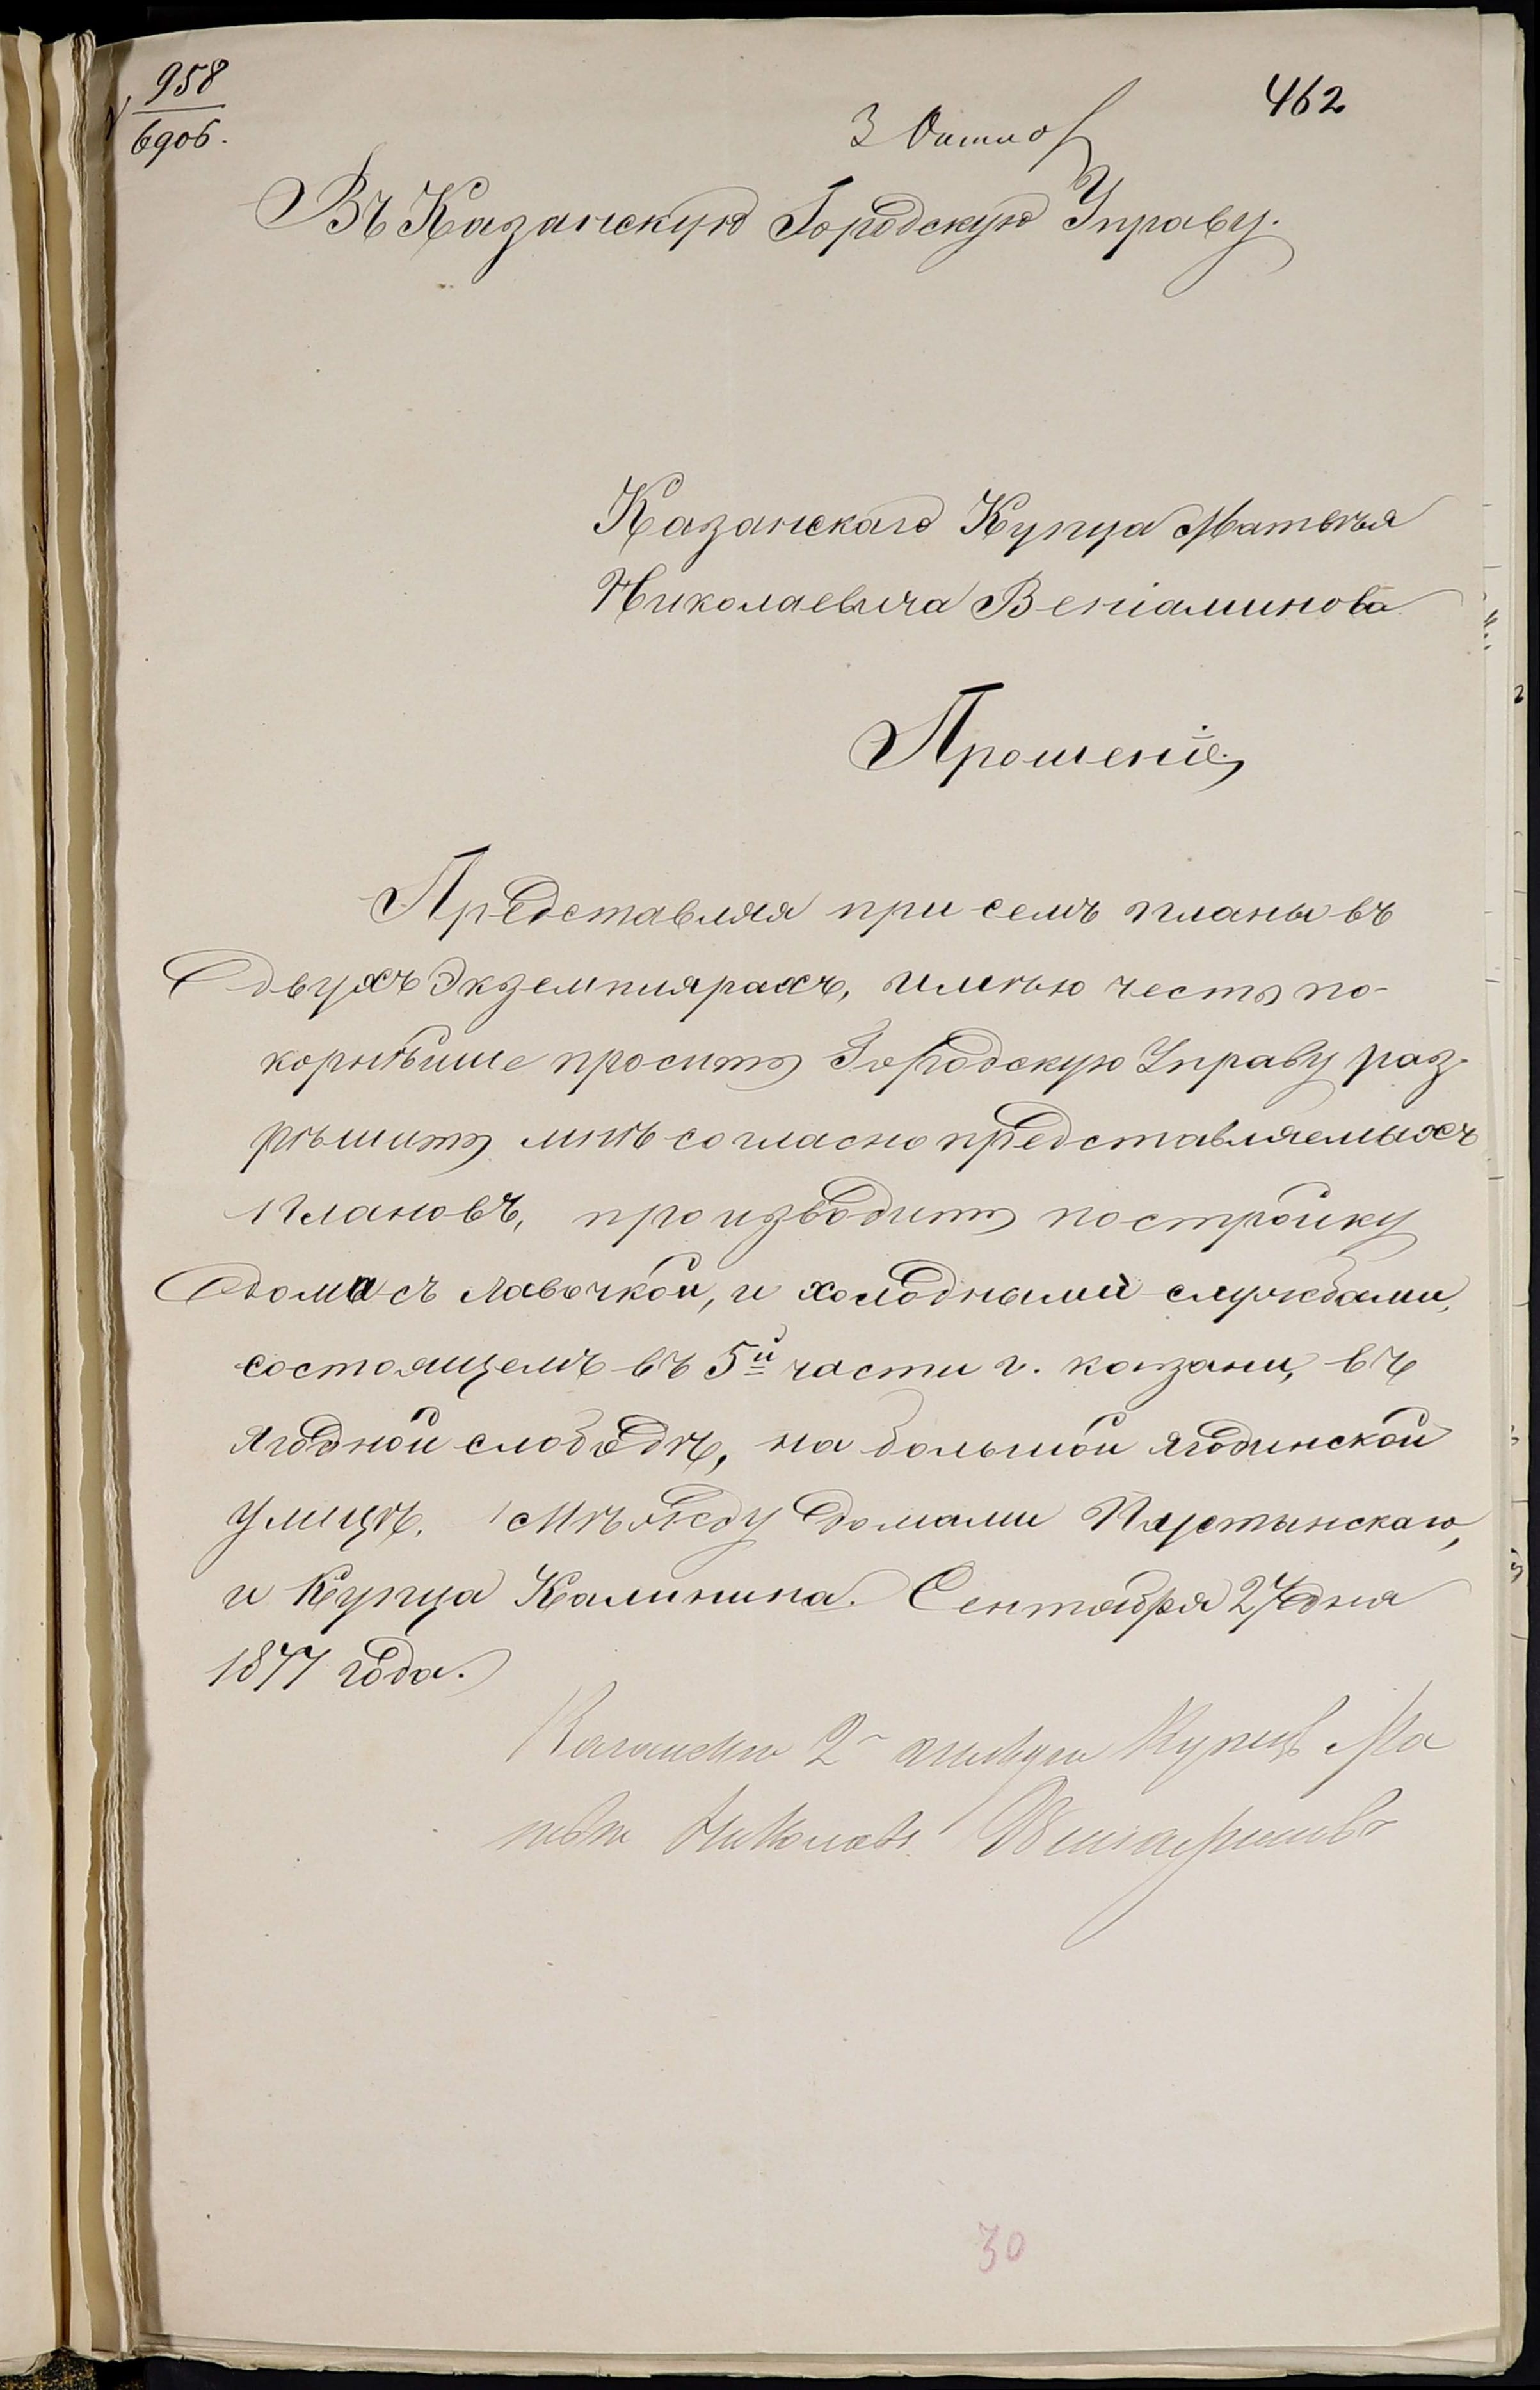 958
6906.
462
3 Октяб
Въ Казанскую Городскую Управу.
Казанскаго Купца Матвѣя
Николаевича Веніаминова
Прошеніе,
Представляя при семъ планы въ
двухъ экземплярахъ, имѣю честь по-
корнѣйше просить Городскую Управу раз-
рѣшить мнѣ согласно представляемыхъ
плановъ, производить постройку
дома съ лавочкой, и холодными службами,
состоящемъ въ 5й части г. казани, въ
ягодной слободѣ, на большой ягодинской
улицѣ, Мѣжду домами
и Купца Калинина. Сентября 27 дня
1877 года.
Казанскій 2й гильдіи Купецъ Ма
твѣй Николаевъ Веніаминовъ
30